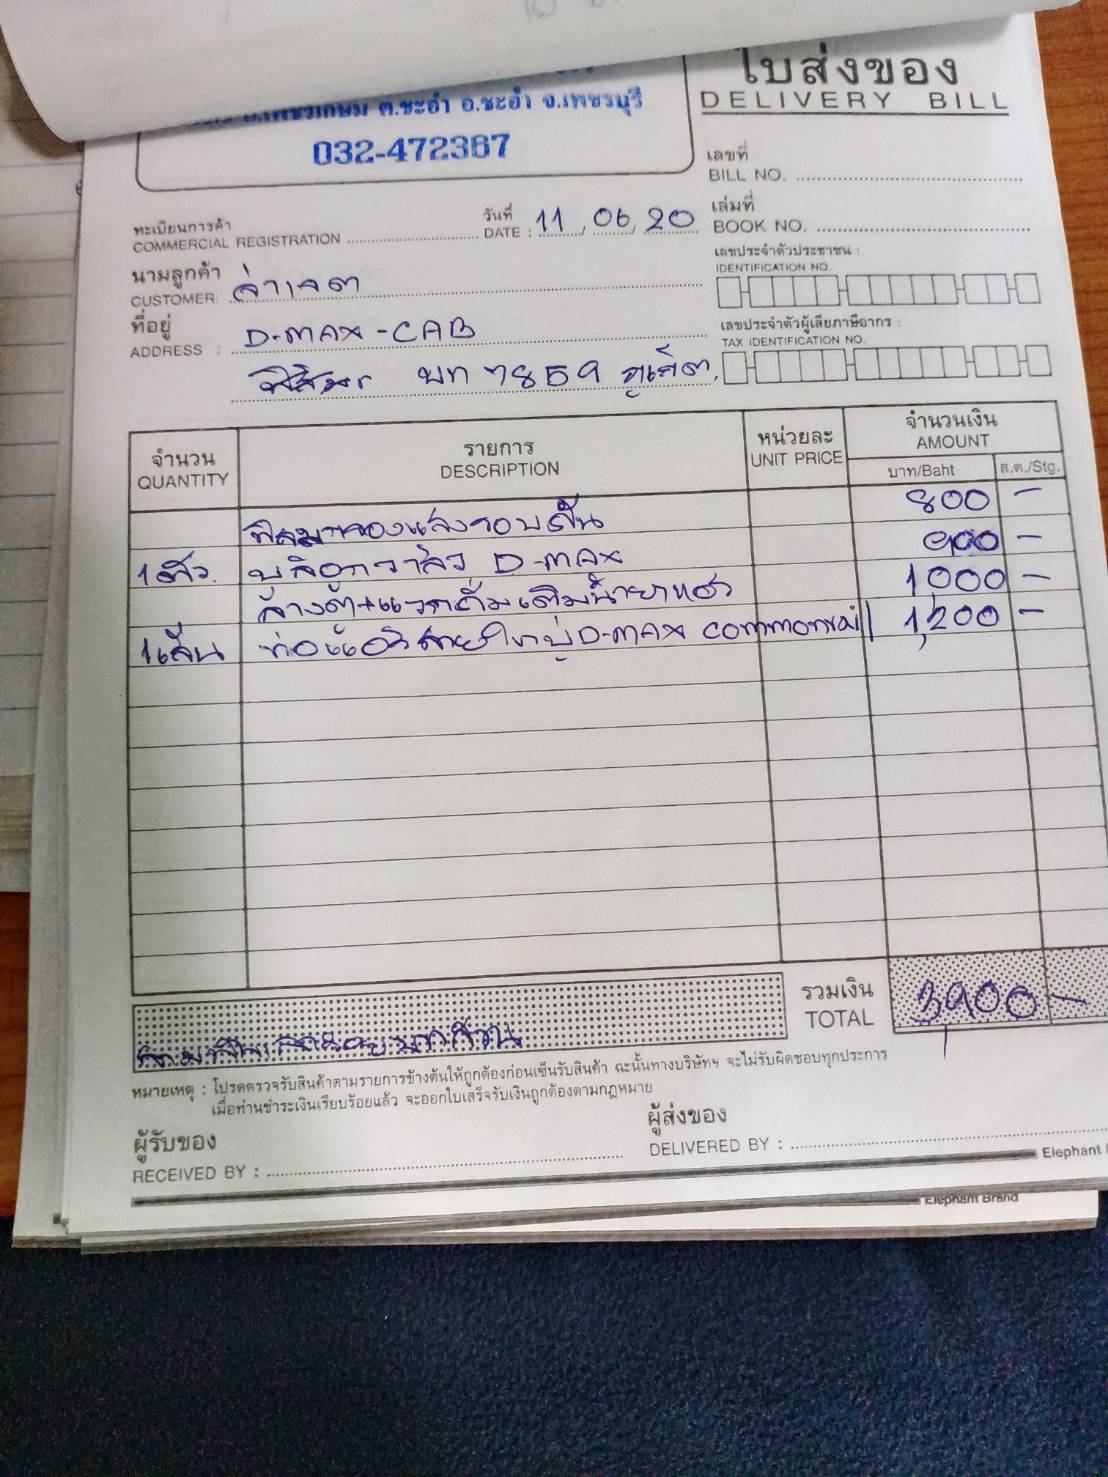 ใบส่งของ
DELIVERY BILL
ต.ชะอำ อ.ชะอำ จ.เพชรบุรี
032-472367
เลขที่
BILL NO.
ทะเบียนการค้า
COMMERCIAL REGISTRATION
วันที่
DATE : 11, 06, 20
เล่มที่
BOOK NO.
เลขประจำตัวประชาชน :
IDENTIFICATION NO.
นามลูกค้า
CUSTOMER
ที่อยู่
ADDRESS : D-MAX-CAB
เลขประจำตัวผู้เสียภาษีอากร :
TAX IDENTIFICATION NO.
บท 7859 ภูเก็ต
จำนวน
QUANTITY
รายการ
DESCRIPTION
หน่วยละ
UNIT PRICE
จำนวนเงิน
AMOUNT
บาท/Baht
ส.ต./Stg.
ฟิล์มกรองแสงรอบคัน 800 -
1 ตัว. บล๊อกวาล์ว D-MAX 900 -
ล้างตู้+แวคคั่มเติมน้ำยา 1000 -
1 เส้น ท่อแอร์ D-MAX commonrail 1,200 -
รวมเงิน
TOTAL
3,900 -
สามพันเก้าร้อยบาทถ้วน
หมายเหตุ : โปรดตรวจรับสินค้าตามรายการข้างต้นให้ถูกต้องก่อนเซ็นรับสินค้า ฉะนั้นทางบริษัทฯ จะไม่รับผิดชอบทุกประการ
เมื่อท่านชำระเงินเรียบร้อยแล้ว จะออกใบเสร็จรับเงินถูกต้องตามกฎหมาย
ผู้รับของ
RECEIVED BY :
ผู้ส่งของ
DELIVERED BY :
Elephant
Elephant Brand